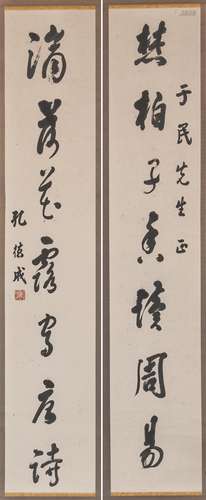 焚柏子香讀周易
于民先生正
滴荷花露寫唐詩
孔德成